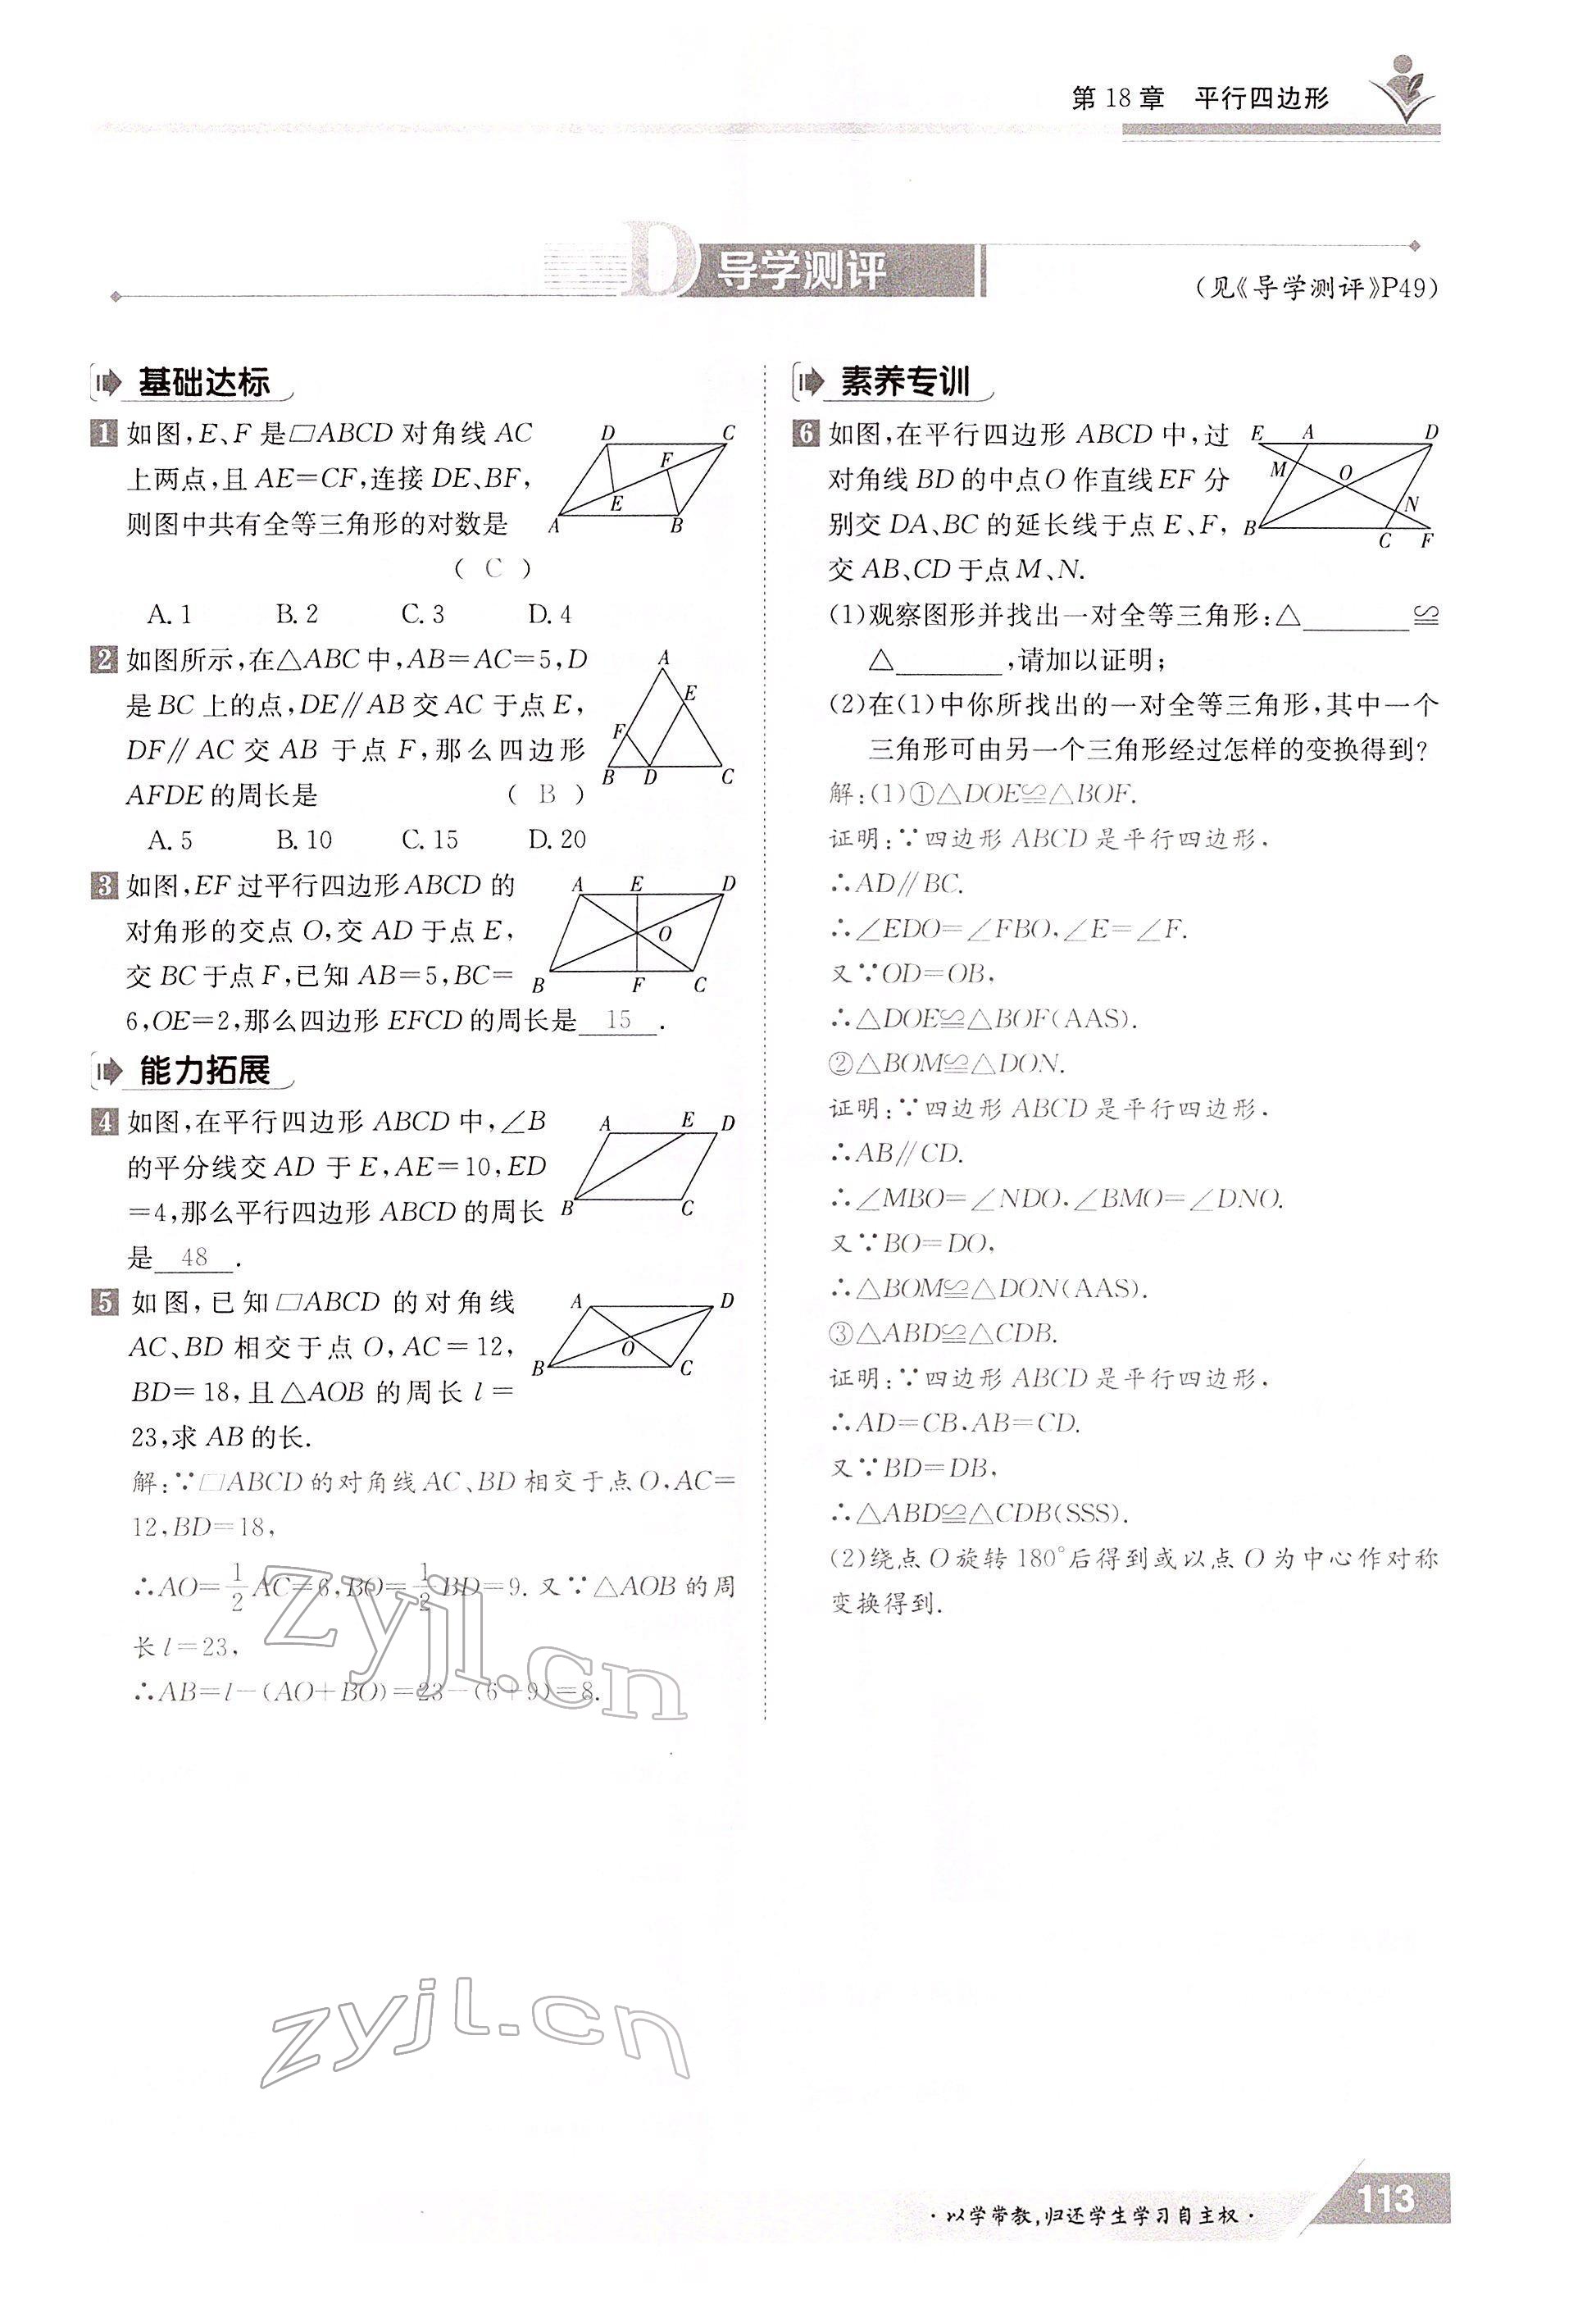 第18章 平行四边形
D 导学测评
(见《导学测评》P49)
基础达标
1 如图,E、F是▱ABCD对角线AC
上两点,且AE=CF,连接DE、BF,
则图中共有全等三角形的对数是
( C )
A. 1 B. 2 C. 3 D. 4
D C F E A B
2 如图所示,在△ABC中,AB=AC=5,D
是BC上的点,DE∥AB交AC于点E,
DF∥AC交AB于点F,那么四边形
AFDE的周长是 ( B )
A. 5 B. 10 C. 15 D. 20
A E F B D C
3 如图,EF过平行四边形ABCD的
对角形的交点O,交AD于点E,
交BC于点F,已知AB=5,BC=
6,OE=2,那么四边形EFCD的周长是 15 .
A E D O B F C
能力拓展
4 如图,在平行四边形ABCD中,∠B
的平分线交AD于E,AE=10,ED
=4,那么平行四边形ABCD的周长
是 48 .
A E D B C
5 如图,已知▱ABCD的对角线
AC、BD相交于点O,AC=12,
BD=18,且△AOB的周长l=
23,求AB的长.
A D O B C
解:∵▱ABCD的对角线AC、BD相交于点O,AC=
12,BD=18,
∴AO=1/2AC=6,BO=1/2BD=9.又∵△AOB的周
长l=23,
∴AB=l-(AO+BO)=23-(6+9)=8.
素养专训
6 如图,在平行四边形ABCD中,过
对角线BD的中点O作直线EF分
别交DA、BC的延长线于点E、F,
交AB、CD于点M、N.
E A D M O N B C F
(1)观察图形并找出一对全等三角形:△________≌
△________,请加以证明;
(2)在(1)中你所找出的一对全等三角形,其中一个
三角形可由另一个三角形经过怎样的变换得到?
解:(1)①△DOE≌△BOF.
证明:∵四边形ABCD是平行四边形.
∴AD∥BC.
∴∠EDO=∠FBO,∠E=∠F.
又∵OD=OB,
∴△DOE≌△BOF(AAS).
②△BOM≌△DON.
证明:∵四边形ABCD是平行四边形.
∴AB∥CD.
∴∠MBO=∠NDO,∠BMO=∠DNO.
又∵BO=DO,
∴△BOM≌△DON(AAS).
③△ABD≌△CDB.
证明:∵四边形ABCD是平行四边形.
∴AD=CB,AB=CD.
又∵BD=DB,
∴△ABD≌△CDB(SSS).
(2)绕点O旋转180°后得到或以点O为中心作对称
变换得到.
zyjl.cn
zyjl.cn
·以学带教,归还学生学习自主权·
113